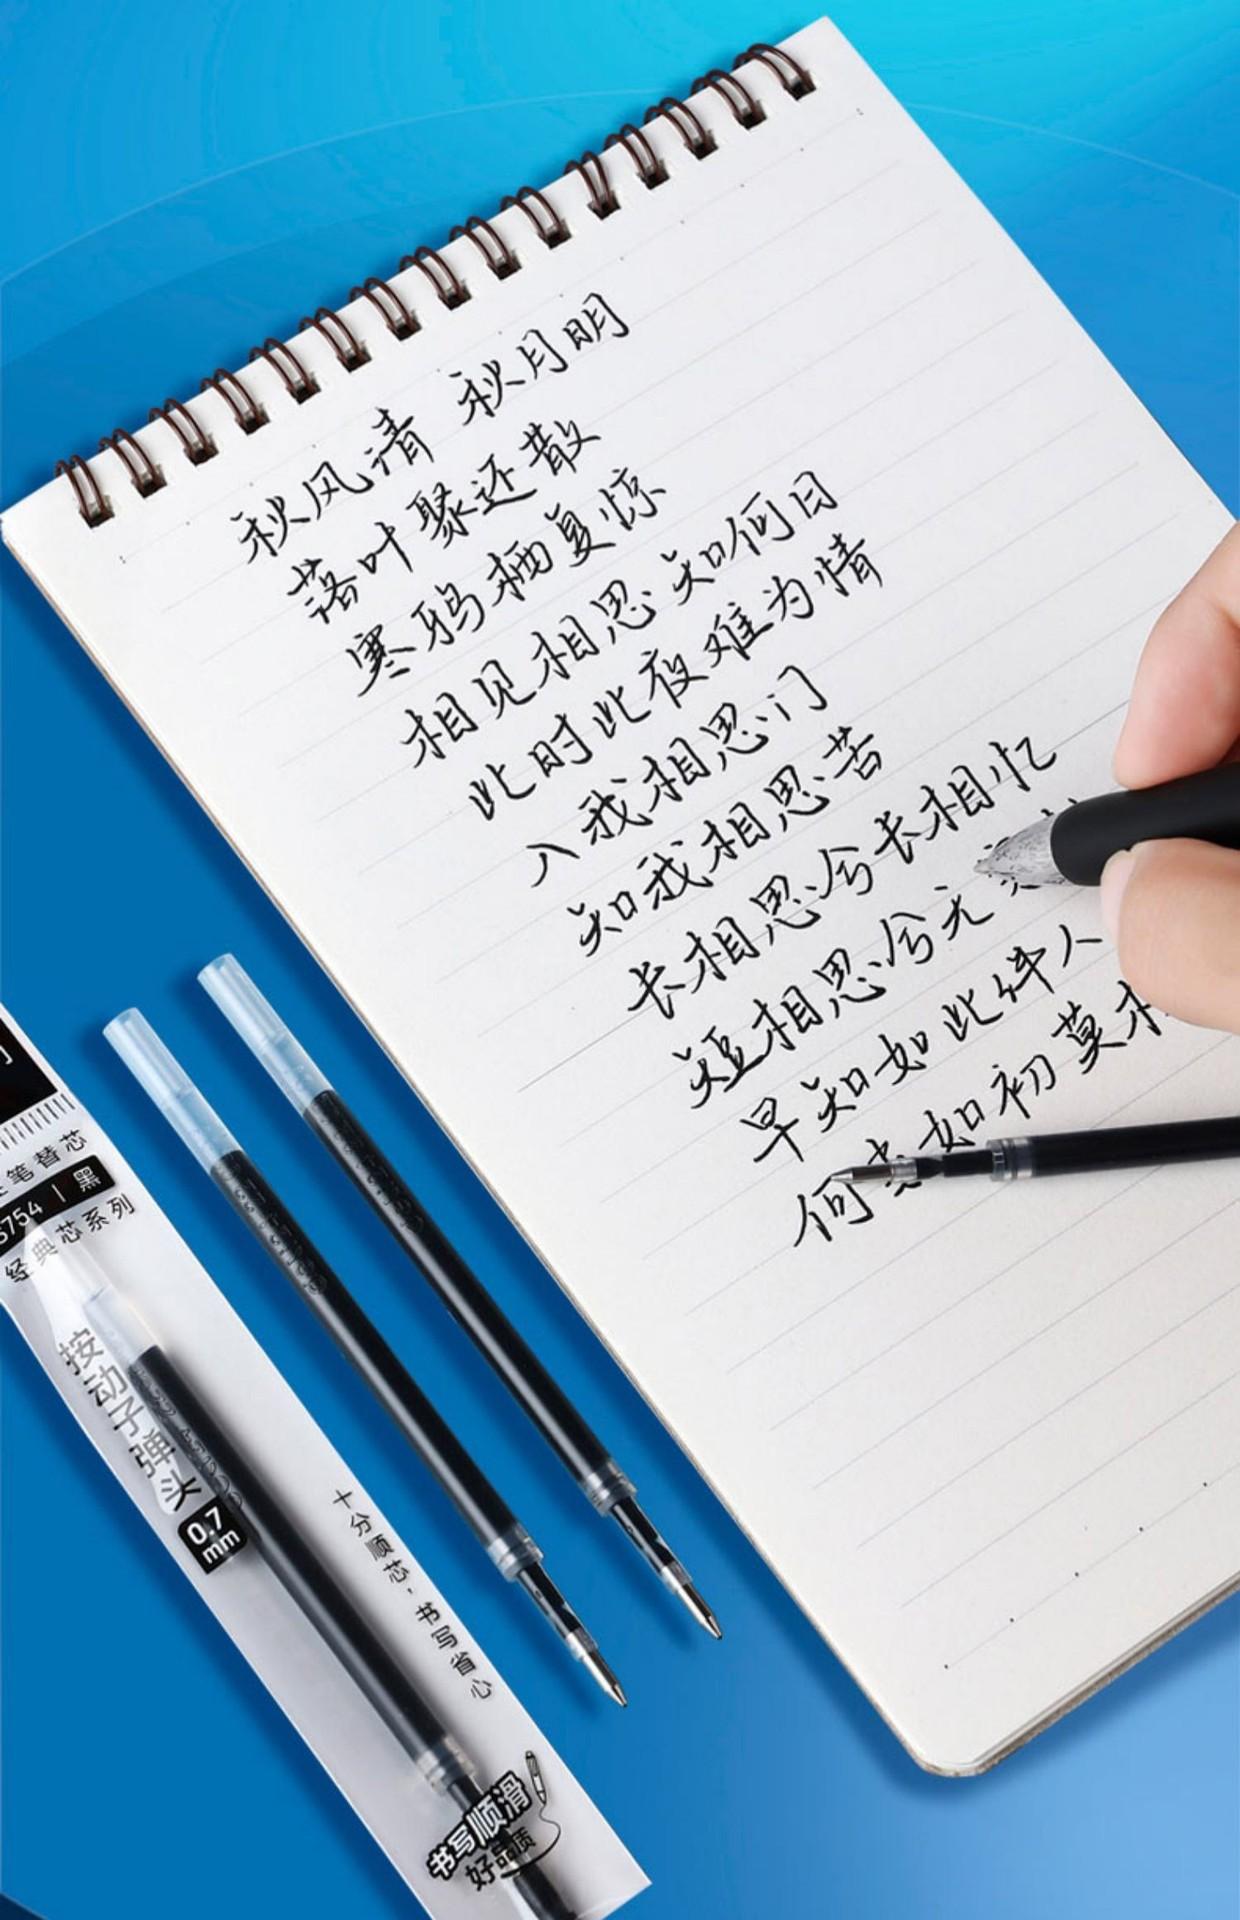 秋风清 秋月明
落叶聚还散
寒鸦栖复惊
相见相思知何日
此时此夜难为情
入我相思门
知我相思苦
长相思兮长相忆
短相思兮无
早知如此绊人
何 如初莫相
笔替芯
黑
经典芯系列
按动子弹头
0.7
mm
十分顺芯,书写省心
书写顺滑
好品质